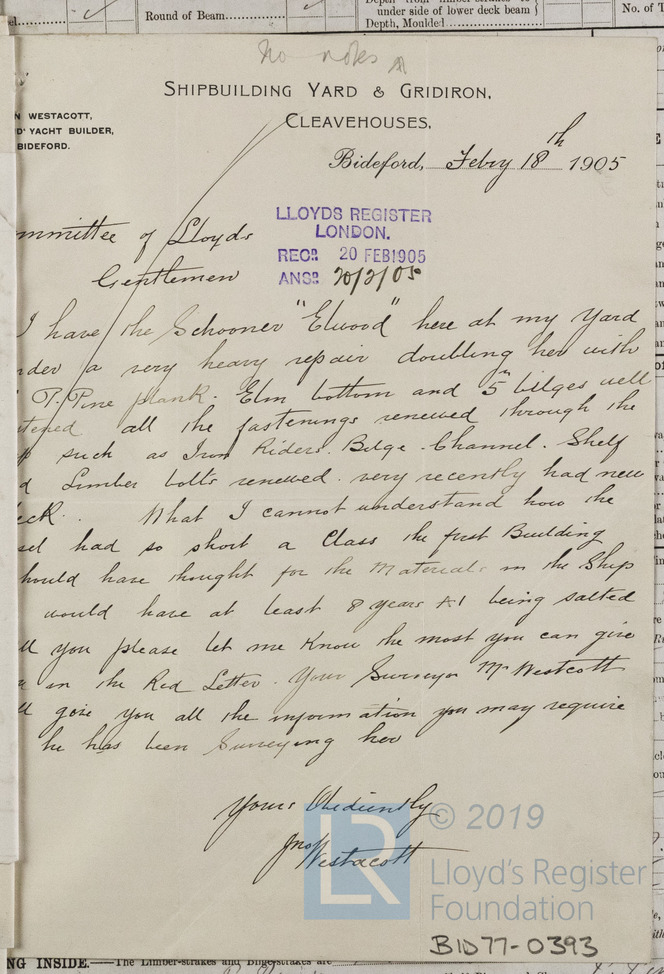 Round of Beam
under side of lower deck beam
Depth, Moulded
No. of T
No notes
SHIPBUILDING YARD & GRIDIRON,
CLEAVEHOUSES,
N WESTACOTT,
D YACHT BUILDER,
BIDEFORD.
Bideford, Febry 18th 1905
mmittee of Lloyds
LLOYDS REGISTER
LONDON.
RECD 20 FEB 1905
ANSD 20/2/05
Gentlemen
I have the Schooner "Elwood" here at my Yard
nder a very heavy repair doubling her with
P. Pine plank. Elm bottom and 5 in bilges well
tened all the fastenings renewed through the
such as Iron Riders. Bilge. Channel. Shelf
d Limber bolts renewed. very recently had new
eck. What I cannot understand how the
sel had so short a Class the first Building
hould have thought for the Materials in the Ship
would have at least 8 years A1 being salted
ll you please let me know the most you can give
in the Red Letter. Your Surveyor Mr Westcott
ll give you all the information you may require
he has been Surveying her
Yours Obediently
Jno Westacott
© 2019
LR
Lloyd's Register
Foundation
BID77-0393
NG INSIDE.—The Limber-strakes and Bilge-strakes are